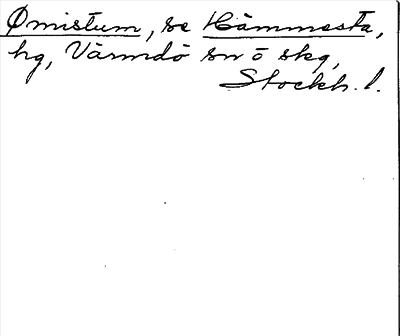 Ømistum, se Hämmesta,
hg, Värmdö sn ö skg,
Stockh. l.